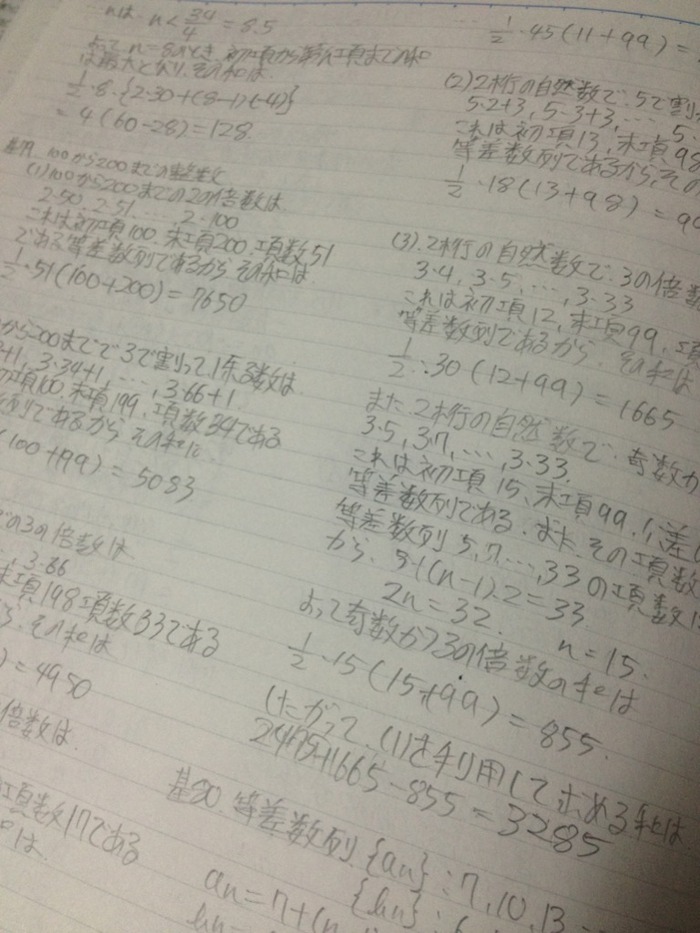 nは n < 34/4 = 8.5
よって n=8のとき 初項から第n項までの和
は最大となり、その和は
1/2・8・{2・30+(8-1)(-4)}
= 4(60-28)=128.
100から200までの整数
(1) 100から200までの2の倍数は
2・50, 2・51, …, 2・100
これは初項100, 末項200, 項数51
である等差数列であるから その和は
1/2・51(100+200) = 7650
から200までで3で割って1余る数は
+1, 3・34+1, …, 3・66+1
項100, 末項199, 項数34である
列であるから その和は
(100+199) = 5083
の3の倍数は
, 3・66
末項198 項数33である
その和は
) = 4950
倍数は
項数17である
は
1/2・45(11+99) =
(2) 2桁の自然数で 5で割っ
5・2+3, 5・3+3, … 5・
これは初項13, 末項98
等差数列であるから、その
1/2・18(13+98) = 99
(3) 2桁の自然数で 3の倍数
3・4, 3・5, …, 3・33
これは初項12, 末項99, 項
等差数列であるから その和は
1/2・30(12+99) = 1665
また 2桁の自然数で 奇数か
3・5, 3・7, …, 3・33.
これは初項15, 末項99, 公差
等差数列である. また その項数
等差数列 5, 7, …, 33 の項数に
から 5+(n-1)・2=33
2n=32. n=15.
よって奇数かつ3の倍数の和は
1/2・15(15+99) = 855.
したがって、(1)を利用して求める和は
2475+1665-855=3285
基20 等差数列 {an} : 7, 10, 13
{bn} :
an=7+(n
bn=